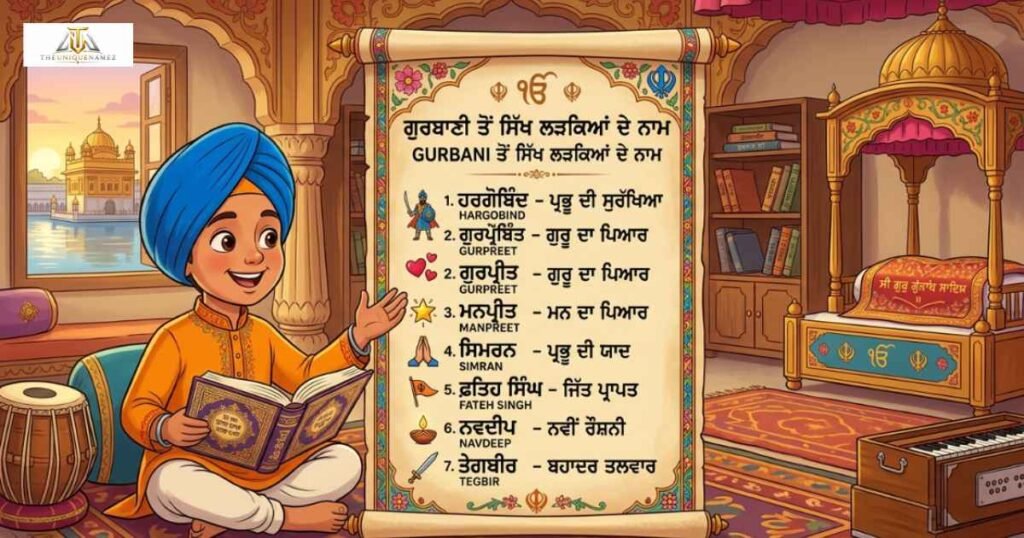 THEUNIQUENAMEZ
ੴ
ਗੁਰਬਾਣੀ ਤੋਂ ਸਿੱਖ ਲੜਕਿਆਂ ਦੇ ਨਾਮ
GURBANI ਤੋਂ ਸਿੱਖ ਲੜਕਿਆਂ ਦੇ ਨਾਮ
1. ਹਰਗੋਬਿੰਦ – ਪ੍ਰਭੂ ਦੀ ਸੁਰੱਖਿਆ
HARGOBIND
2. ਗੁਰਪ੍ਰੋਬਿੰਤ – ਗੁਰੂ ਦਾ ਪਿਆਰ
GURPREET
2. ਗੁਰਪ੍ਰੀਤ – ਗੁਰੂ ਦਾ ਪਿਆਰ
GURPREET
3. ਮਨਪ੍ਰੀਤ – ਮਨ ਦਾ ਪਿਆਰ
MANPREET
4. ਸਿਮਰਨ – ਪ੍ਰਭੂ ਦੀ ਯਾਦ
SIMRAN
5. ਫ਼ਤਿਹ ਸਿੰਘ – ਜਿੱਤ ਪ੍ਰਾਪਤ
FATEH SINGH
6. ਨਵਦੀਪ – ਨਵੀਂ ਰੌਸ਼ਨੀ
NAVDEEP
7. ਤੇਗਬੀਰ – ਬਹਾਦਰ ਤਲਵਾਰ
TEGBIR
ੴ